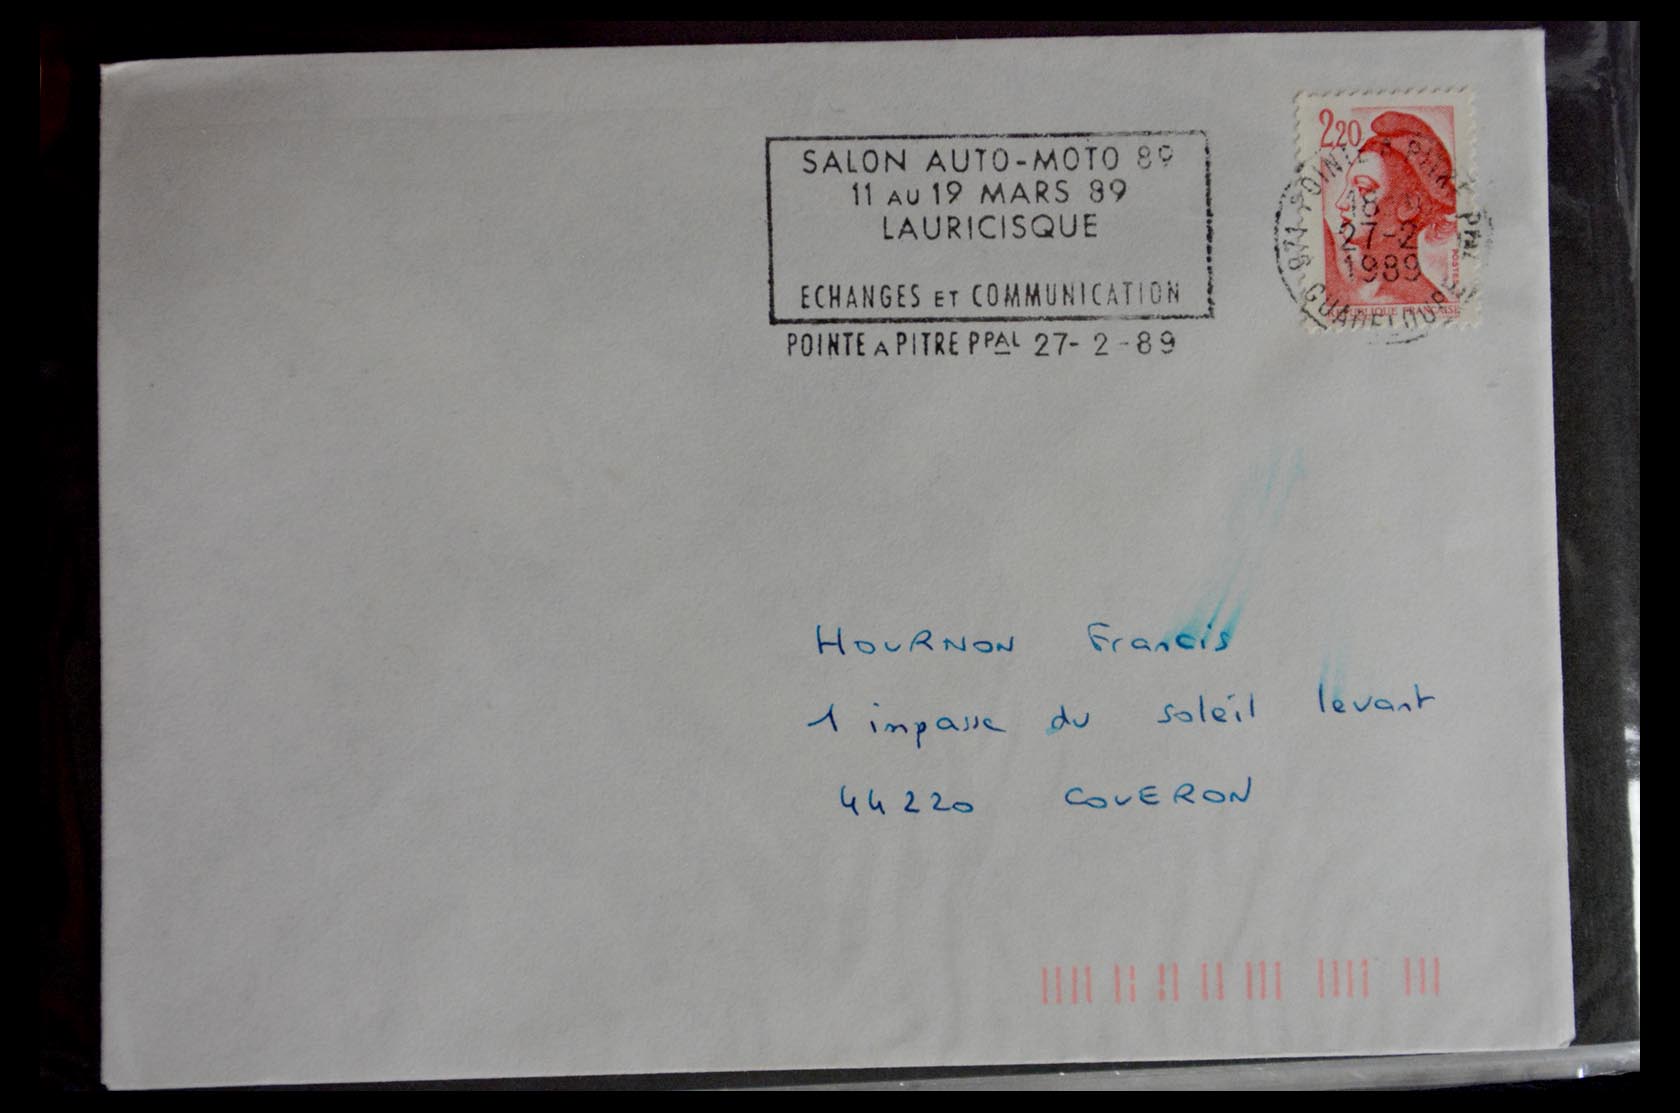 SALON AUTO-MOTO 89
11 AU 19 MARS 89
LAURICISQUE
ECHANGES ET COMMUNICATION
POINTE A PITRE PPAL 27-2-89
2,20
POSTES
REPUBLIQUE FRANÇAISE
971 POINTE A PITRE PPAL
18
27-2
1989
GUADELOUPE
HOURNON Francis
1 impasse du soleil levant
44220 COUERON